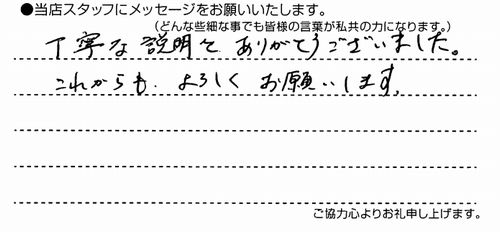 ●当店スタッフにメッセージをお願いいたします。
(どんな些細な事でも皆様の言葉が私共の力になります。)
丁寧な説明で ありがとうございました。
これからも よろしく お願いします。
ご協力心よりお礼申し上げます。